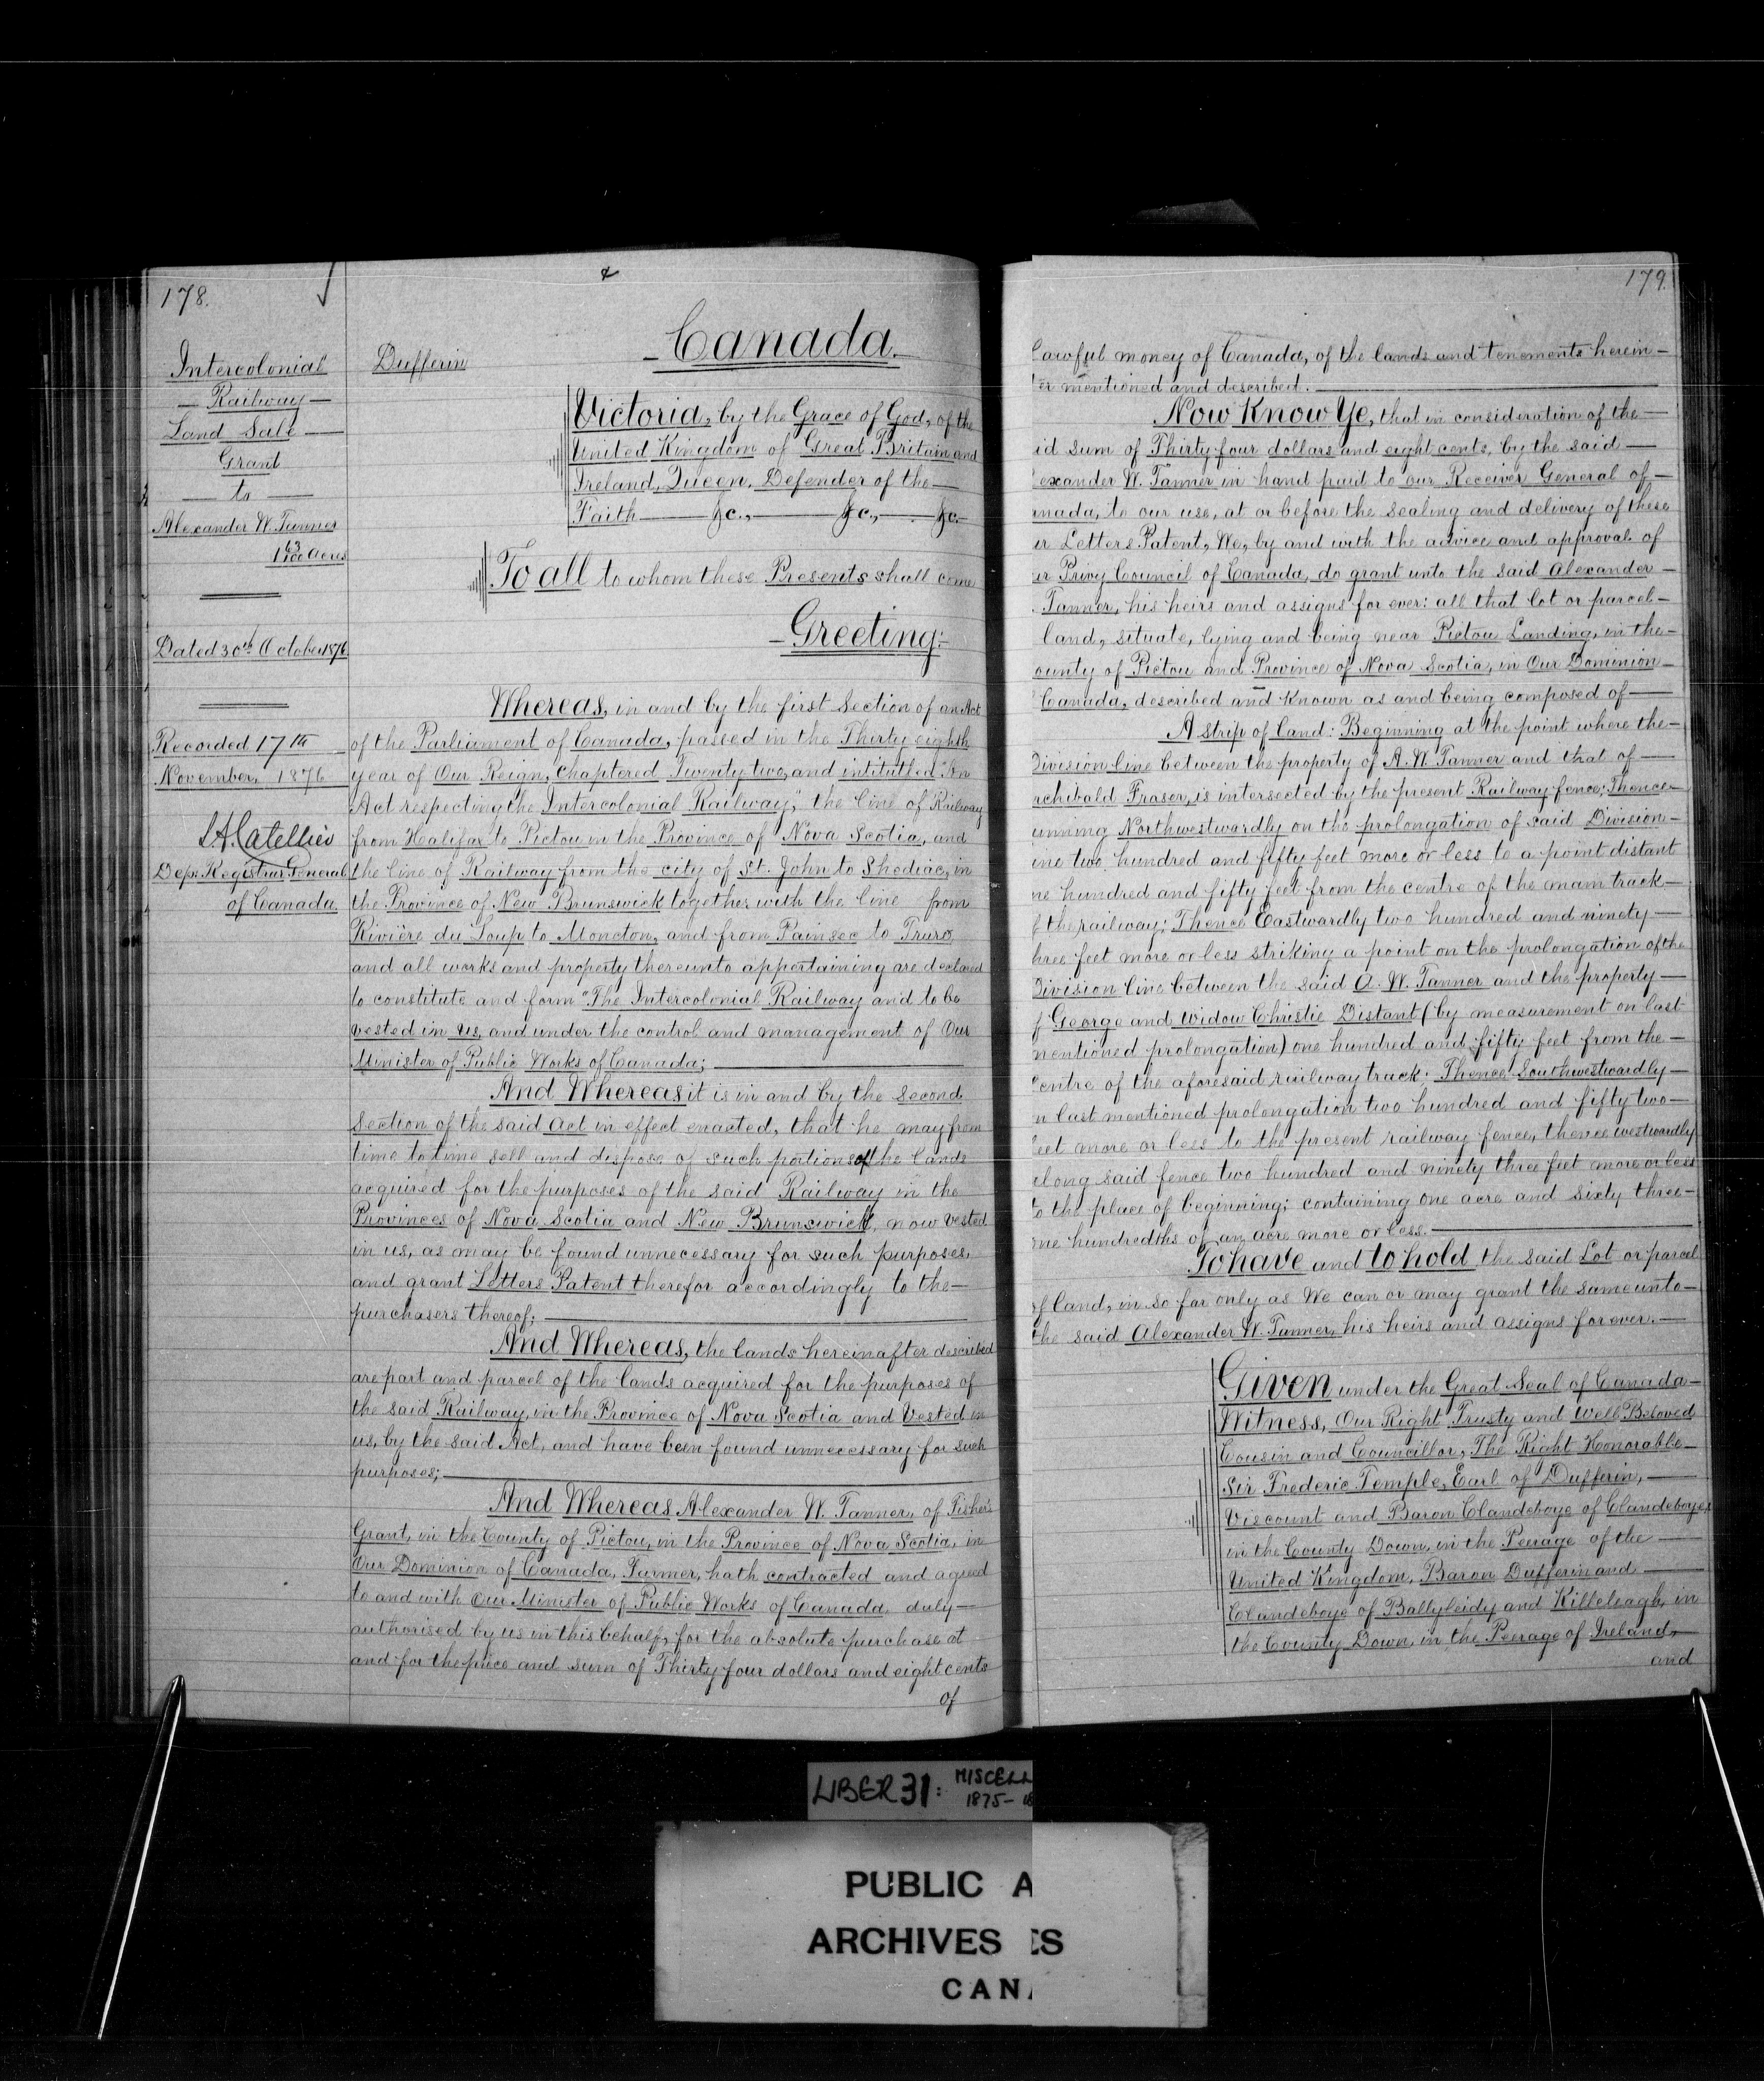 178.
Intercolonial
Railway
Land Sale
Grant
to
Alexander W. Tanner
1 63/100 Acres
Dated 30th October 1876
Recorded 17th
November, 1876
L.A. Catellier
Dep. Registrar General
of Canada
Dufferin
Canada.
Victoria, by the Grace of God, of the
United Kingdom of Great Britain and
Ireland, Queen, Defender of the
Faith &c., &c., &c.
To all to whom these Presents shall come
Greeting:
Whereas, in and by the first Section of an Act
of the Parliament of Canada, passed in the Thirty eighth
year of Our Reign, Chaptered Twenty two, and intituled "An
Act respecting the Intercolonial Railway," the line of Railway
from Halifax to Pictou in the Province of Nova Scotia, and
the line of Railway from the city of St. John to Shediac, in
the Province of New Brunswick together with the line from
Rivière du Loup to Moncton, and from Painsec to Truro,
and all works and property thereunto appertaining are declared
to constitute and form "The Intercolonial Railway and to be
vested in us, and under the control and management of Our
Minister of Public Works of Canada;
And Whereas it is in and by the Second
Section of the said Act in effect enacted, that he may from
time to time sell and dispose of such portions of the lands
acquired for the purposes of the said Railway in the
Provinces of Nova Scotia and New Brunswick, now vested
in us, as may be found unnecessary for such purposes,
and grant Letters Patent therefor accordingly to the
purchasers thereof;
And Whereas, the lands hereinafter described
are part and parcel of the lands acquired for the purposes of
the said Railway, in the Province of Nova Scotia and Vested in
us, by the said Act, and have been found unnecessary for such
purposes;
And Whereas Alexander W. Tanner, of Fisher's
Grant, in the County of Pictou, in the Province of Nova Scotia, in
Our Dominion of Canada, Farmer, hath contracted and agreed
to and with Our Minister of Public Works of Canada duly
authorised by us in this behalf, for the absolute purchase at
and for the price and sum of Thirty four dollars and eight cents
of
179.
lawful money of Canada, of the lands and tenements herein
er mentioned and described.
Now Know Ye, that in consideration of the
id sum of Thirty four dollars and eight cents, by the said
exander W. Tanner in hand paid to our Receiver General of
anada, to our use, at or before the sealing and delivery of these
ur Letters Patent, We, by and with the advice and approval of
ur Privy Council of Canada, do grant unto the said Alexander
Tanner, his heirs and assigns for ever: all that lot or parcel
land, situate, lying and being near Pictou Landing, in the
ounty of Pictou and Province of Nova Scotia, in Our Dominion
Canada, described and known as and being composed of
A strip of land: Beginning at the point where the
Division line between the property of A. W. Tanner and that of
rchibald Fraser, is intersected by the present Railway fence; Thence
unning Northwestwardly on the prolongation of said Division
ine two hundred and fifty feet more or less to a point distant
ne hundred and fifty feet from the centre of the main track
f the railway; Thence Eastwardly two hundred and ninety
hree feet more or less striking a point on the prolongation of the
Division line between the said A. W. Tanner and the property
f George and Widow Christie Distant (by measurement on last
mentioned prolongation) one hundred and fifty feet from the
Centre of the aforesaid railway track: Thence Southwestwardly
n last mentioned prolongation two hundred and fifty two
feet more or less to the present railway fence, thence westwardly
along said fence two hundred and ninety three feet more or less
to the place of beginning; containing one acre and sixty three
one hundredths of an acre more or less.
To have and to hold the said Lot or parcel
of land, in so far only as We can or may grant the same unto
the said Alexander W. Tanner, his heirs and assigns forever.
Given under the Great Seal of Canada
Witness, Our Right Trusty and Well Beloved
Cousin and Councillor, The Right Honorable
Sir Frederic Temple, Earl of Dufferin,
Viscount and Baron Clandeboye of Clandeboye,
in the County Down, in the Peerage of the
United Kingdom, Baron Dufferin and
Clandeboye of Ballyleidy and Killeleagh, in
the County Down, in the Peerage of Ireland,
and
LIBER 31: MISCELL
1875-18
PUBLIC A
ARCHIVES ES
CANA